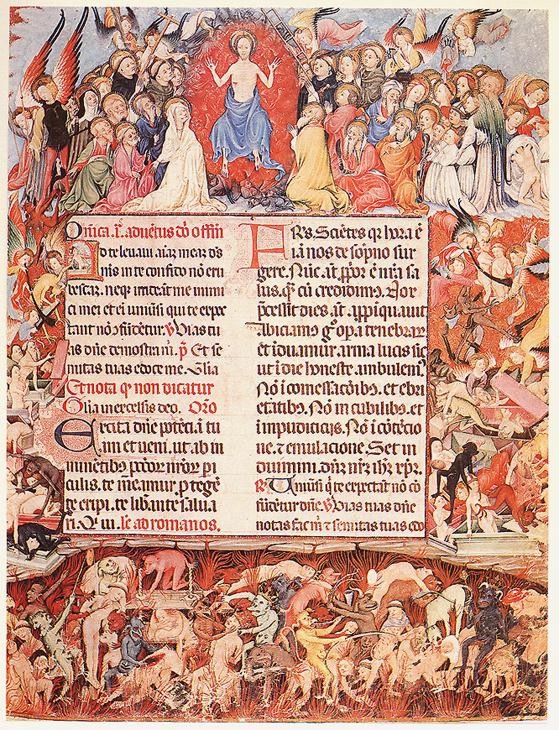 Dn̄ica. i. aduētus dō offīn
Ad te leuaui aīaȝ meaȝ ds̄
m̄s in te confido nō eru
bescaȝ. neqȝ irrideāt me inimi
ci mei et ei uniūsi qui te expe
ctant nō ɔfūdētur. v̄ Uias tu
as dn̄e demostra m̄. p̄ Et se
mitas tuas edoce me. Glīa
Et nota qr non dicatur
Glīa in excelsis deo. Orō
Excita dn̄e potēciā tu
am et ueni. ut ab in
minētibȝ pctōȝ nr̄oȝ pi
culis. te me amur. ptegē
te eripi. te libante salua
ri. Qi ui. lc̄ ad romanos.
FRs. Sciētes qr hora ē
iā nos de sopno sur
gere. Nūc. aūt. ppor ē nr̄a sa
lus. qȝ cū credidimȝ. Nox
pcessit dies aūt appīquauit
Abiciamȝ gͦ opa tenebraȝ
et iduamur arma lucis sic
ut ī die honeste ambulemȝ
Nō ī comessacōibȝ. et ebri
etatibȝ. Nō in cubilibȝ. et
impudiciciis. Nō ī cōtēcio
ne. ⁊ emulacione. Set in
duimini. dn̄m nr̄m ih̄m xp̄m.
R̄. Uniūsi qi te expectāt nō cō
fūdētur dn̄e. v̄ Uias tuas dn̄e
notas fac m̄ et semitas tuas edo